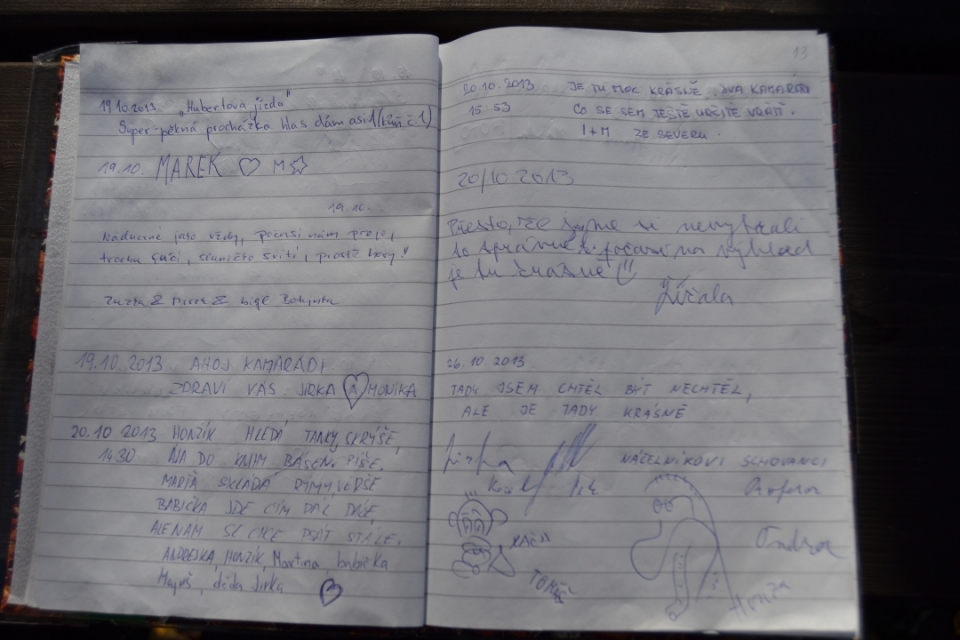 19.10.2013 "Hubertova jízda"
Super-pěkná procházka hlas dám asi 1 (kůň č.1)
19.10. MAREK ♡ M☆
19.10.
Nádherné jako vždy, počasí nám přeje,
trochu fučí, sluníčko svítí, prostě hory!
Zuzka & Mirek &
19.10.2013 AHOJ KAMARÁDI
ZDRAVÍ VÁS JIRKA a MONIKA
20.10 2013 HONZÍK HLEDÁ TANKY, SKRÝŠE,
14.30 NA DO KNIH BÁSEŇ PÍŠE.
MARŤA SKLÁDÁ RÝMY VERŠE
BABIČKA JDE ČÍM DÁL DÁLE,
ALE NÁM SE CHCE PSÁT STÁLE.
ANDREJKA, HONZÍK, Martina, babička
děda Jirka
13
20.10.2013 JE TU MOC KRÁSNĚ, DVA KAMARÁDI
15:53 CO SE SEM JEŠTĚ URČITĚ VRÁTÍ.
I+M ZE SEVERU.
20/10 2013
Přesto, že jsme si nevybrali
to správné počasí na výhled
je tu krásně
Žížala
26.10.2013
TADY JSEM CHTĚL BÝT NECHTĚL,
ALE JE TADY KRÁSNĚ
NÁČELNÍKOVI SCHOVANCI
Profesor
Ondra
KÁČA
TOMÁŠ
Honza